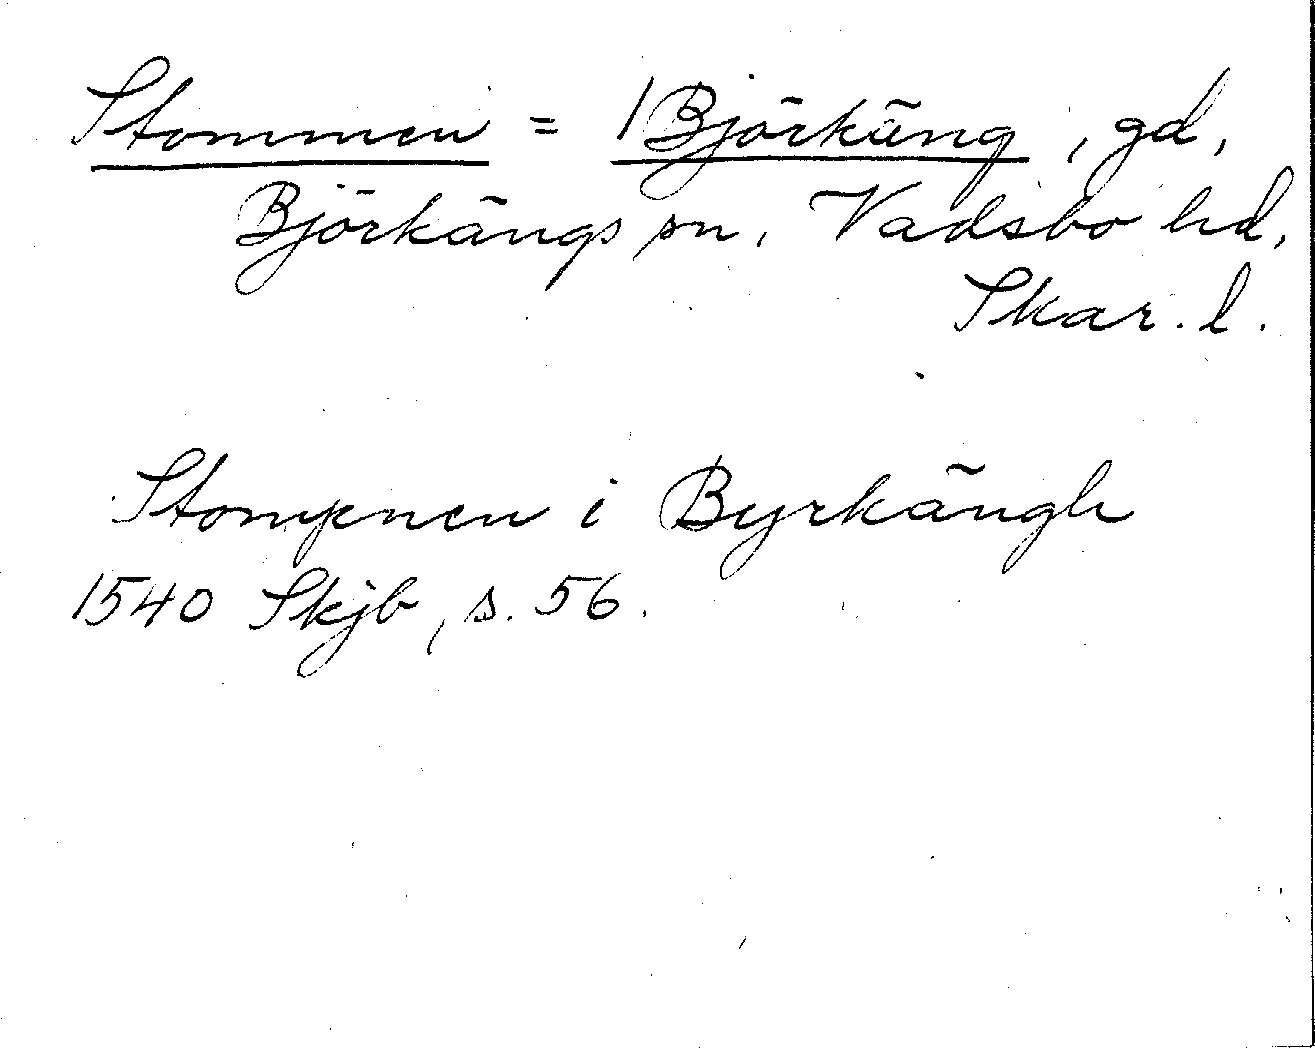 Stommen = 1 Björkäng, gd,
Björkängs sn, Vadsbo hd,
Skar. l.
Stompnen i Byrkängh
1540 Skjb, s. 56.